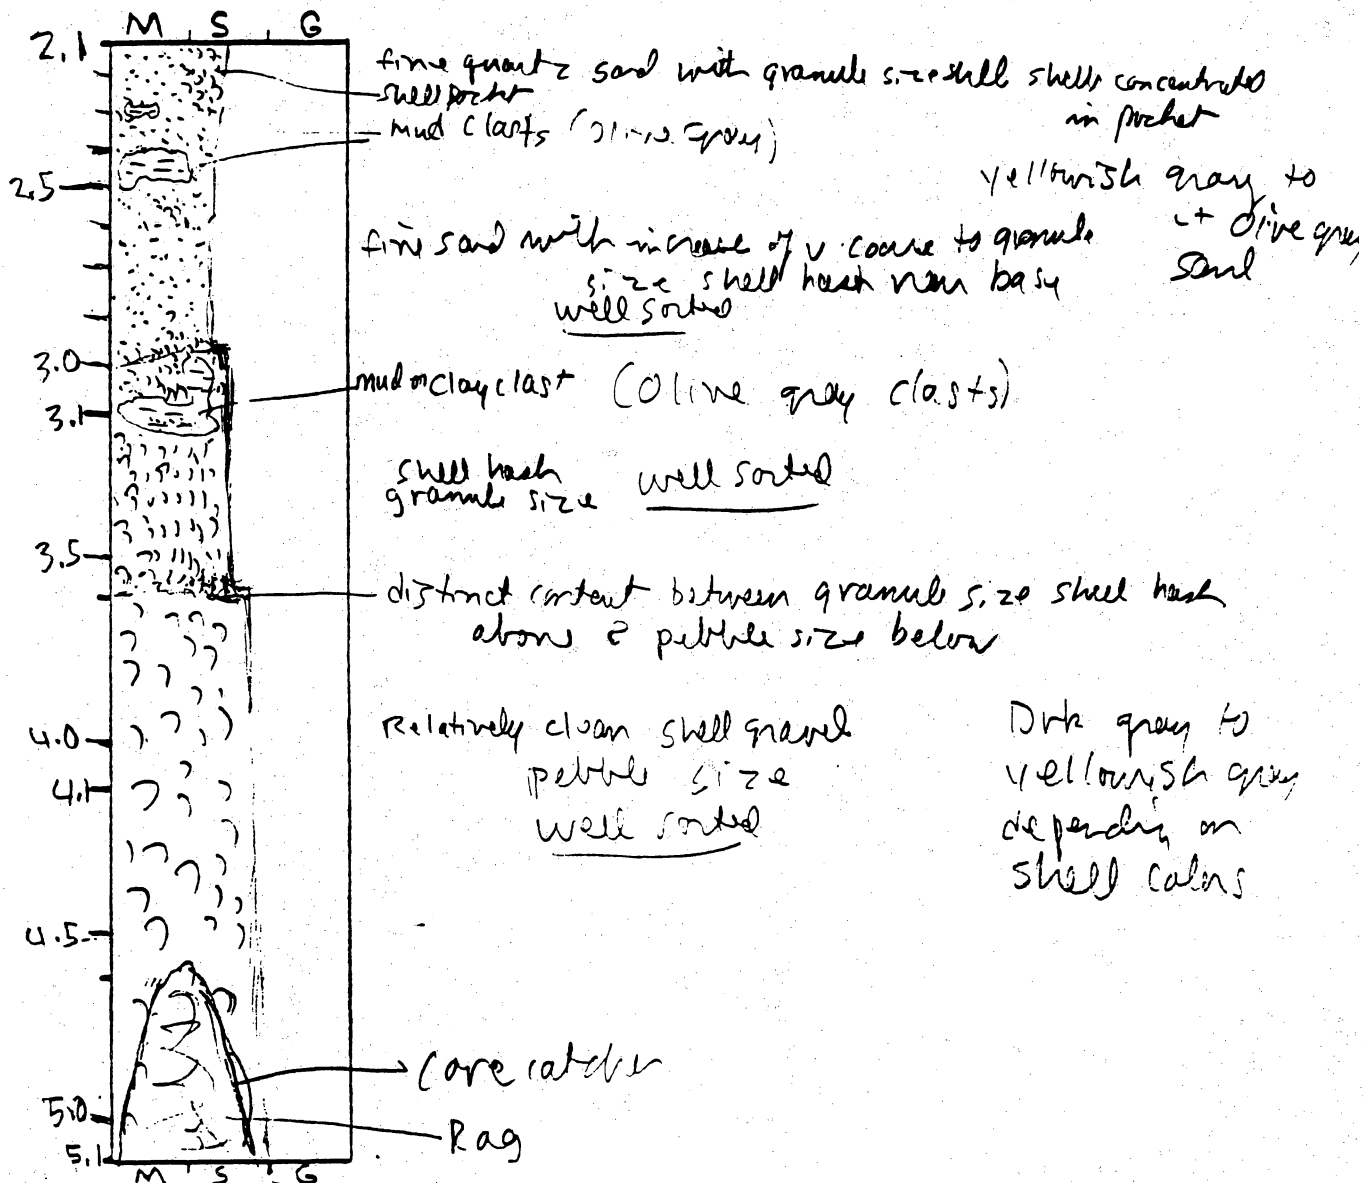 M S G
2.1
fine quartz sand with granule size shell shells concentrated
in pocket
shell pocket
mud clasts (olive gray)
2.5
yellowish gray to
Lt Olive gray
sand
fine sand with increase of v. coarse to granule
size shell hash near base
well sorted
3.0
mud or clay clast (Olive gray clasts)
3.1
shell hash
granule size well sorted
3.5
distinct contact between granule size shell hash
above & pebble size below
4.0
Relatively clean shell gravel
pebble size
well sorted
Drk gray to
yellowish gray
depending on
shell colors
4.1
4.5
Core catcher
5.0
Rag
5.1
M S G